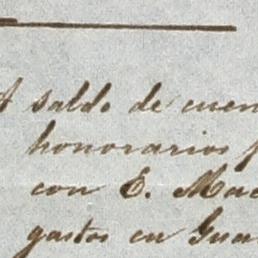 A saldo de cuen
honorarios p
con E. Mac
gastos en Gua